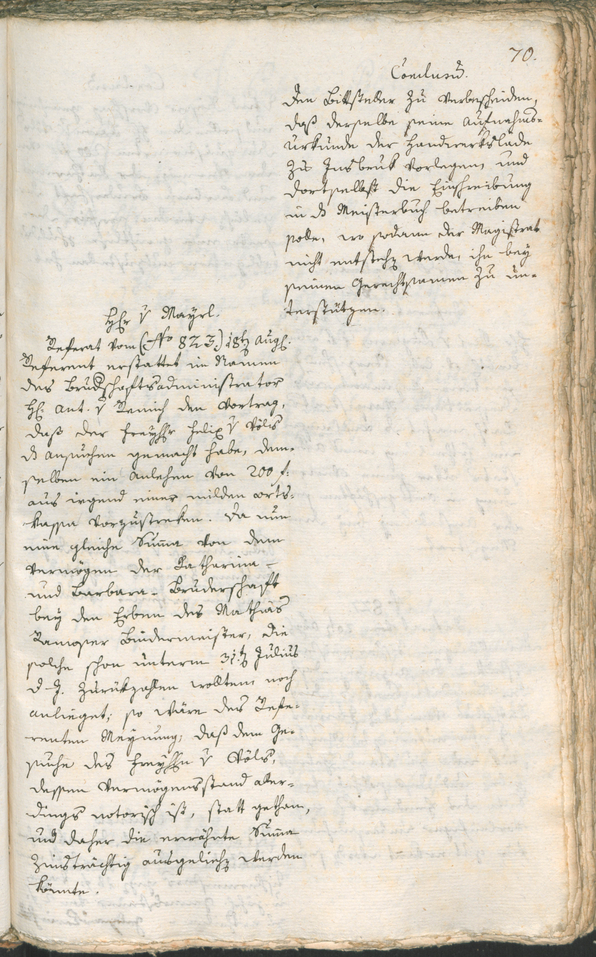 70.
Conclusum.
den Bittsteller zu verbescheiden,
daß derselbe seine Aufnahms-
urkunde der Handwerkslade
zu Insbruk vorlegen, und
dortselbst die Einschreibung
in ds Meisterbuch betreiben
solle, wo sodann der Magistrat
nicht entstehen werde, ihn bey
seinen Gerechtsamen zu un-
terstützen.
Hr v Mayrl.
Referat vom (No 823.) 18ten Aug.
Referent erstattet im Namen
des Bruderschaftsadministrator
H. Ant. v Remich den Vortrag,
daß der Freyhr Felix v Völs
ds Ansuchen gemacht habe, dem-
selben ein Anlehen von 200 f.
aus irgend einer milden Orts-
kassa vorzustreken. Da nun
eine gleiche Summe von dem
Vermögen der Katharina-
und Barbara-Bruderschaft
bey den Erben des Mathias
Ramoser Bindermeister, die
solche schon unterm 31ten Julius
d. J. zurükzahlen wollten noch
anlieget; so wäre des Refe-
renten Meynung, daß dem Ge-
suche des Freyhn v Völs,
dessen Vermögensstand aller-
dings notorisch ist, statt gethan,
und daher die erwähnte Summe
zinsträchtig ausgeliehen werden
könnte.